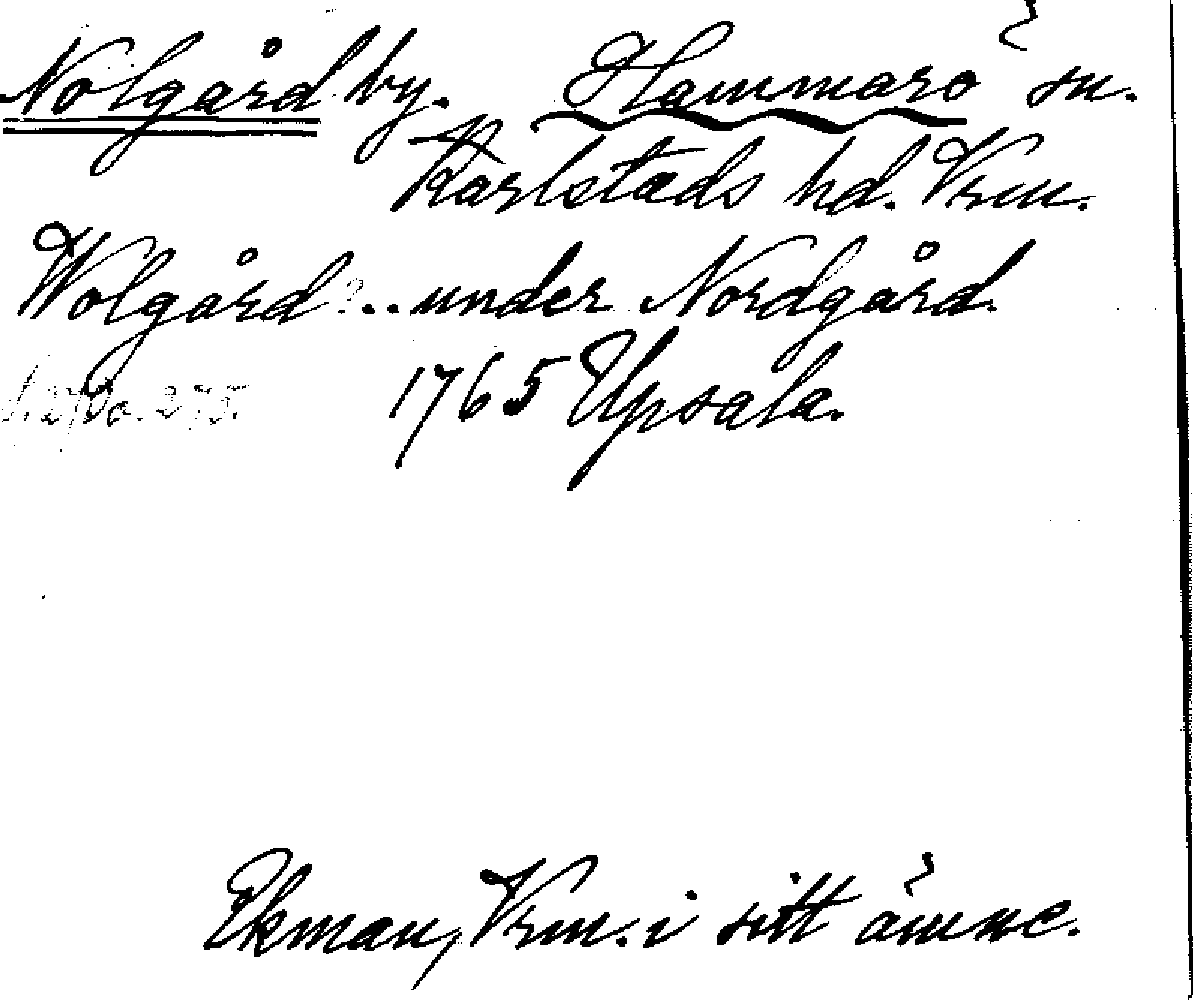 Nolgård by. Hammarö sn.
Karlstads hd. Vrm.
Wolgård?.. under Nordgård.
275. 1765 Upsala.
Ekman, Vrm. i sitt ämne.